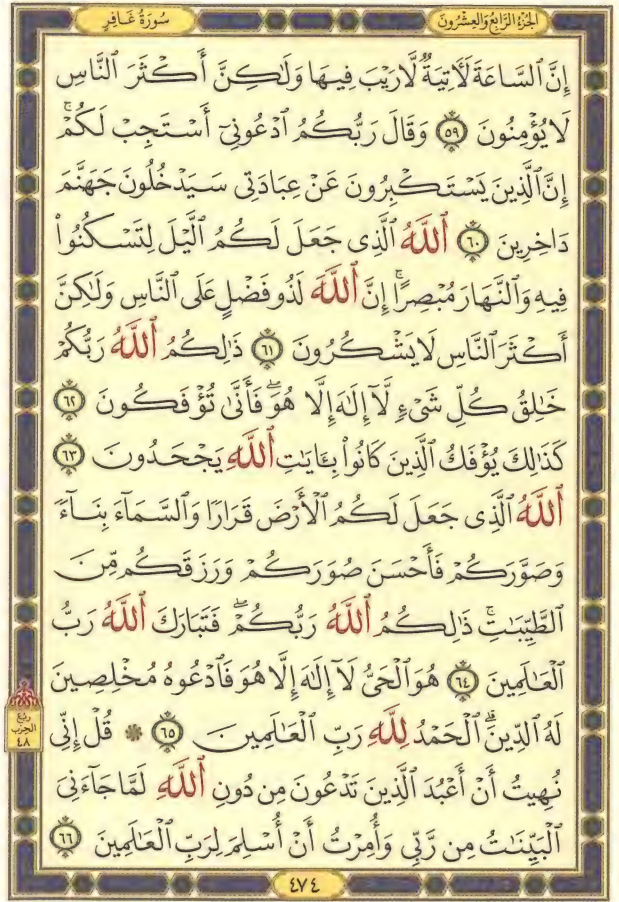 الجزء الرابع والعشرون
سورة غافر
إِنَّ ٱلسَّاعَةَ لَأٓتِيَةٌ لَّا رَيْبَ فِيهَا وَلَٰكِنَّ أَكْثَرَ ٱلنَّاسِ
لَا يُؤْمِنُونَ ٥٩ وَقَالَ رَبُّكُمُ ٱدْعُونِىٓ أَسْتَجِبْ لَكُمْ ۚ
إِنَّ ٱلَّذِينَ يَسْتَكْبِرُونَ عَنْ عِبَادَتِى سَيَدْخُلُونَ جَهَنَّمَ
دَاخِرِينَ ٦٠ ٱللَّهُ ٱلَّذِى جَعَلَ لَكُمُ ٱلَّيْلَ لِتَسْكُنُوا۟
فِيهِ وَٱلنَّهَارَ مُبْصِرًا ۚ إِنَّ ٱللَّهَ لَذُو فَضْلٍ عَلَى ٱلنَّاسِ وَلَٰكِنَّ
أَكْثَرَ ٱلنَّاسِ لَا يَشْكُرُونَ ٦١ ذَٰلِكُمُ ٱللَّهُ رَبُّكُمْ
خَٰلِقُ كُلِّ شَىْءٍ لَّآ إِلَٰهَ إِلَّا هُوَ ۖ فَأَنَّىٰ تُؤْفَكُونَ ٦٢
كَذَٰلِكَ يُؤْفَكُ ٱلَّذِينَ كَانُوا۟ بِـَٔايَٰتِ ٱللَّهِ يَجْحَدُونَ ٦٣
ٱللَّهُ ٱلَّذِى جَعَلَ لَكُمُ ٱلْأَرْضَ قَرَارًا وَٱلسَّمَآءَ بِنَآءً
وَصَوَّرَكُمْ فَأَحْسَنَ صُوَرَكُمْ وَرَزَقَكُم مِّنَ
ٱلطَّيِّبَٰتِ ۚ ذَٰلِكُمُ ٱللَّهُ رَبُّكُمْ ۖ فَتَبَارَكَ ٱللَّهُ رَبُّ
ٱلْعَٰلَمِينَ ٦٤ هُوَ ٱلْحَىُّ لَآ إِلَٰهَ إِلَّا هُوَ فَٱدْعُوهُ مُخْلِصِينَ
لَهُ ٱلدِّينَ ۗ ٱلْحَمْدُ لِلَّهِ رَبِّ ٱلْعَٰلَمِينَ ٦٥ ۞ قُلْ إِنِّى
نُهِيتُ أَنْ أَعْبُدَ ٱلَّذِينَ تَدْعُونَ مِن دُونِ ٱللَّهِ لَمَّا جَآءَنِىَ
ٱلْبَيِّنَٰتُ مِن رَّبِّى وَأُمِرْتُ أَنْ أُسْلِمَ لِرَبِّ ٱلْعَٰلَمِينَ ٦٦
ربع
الحزب
٤٨
٤٧٤